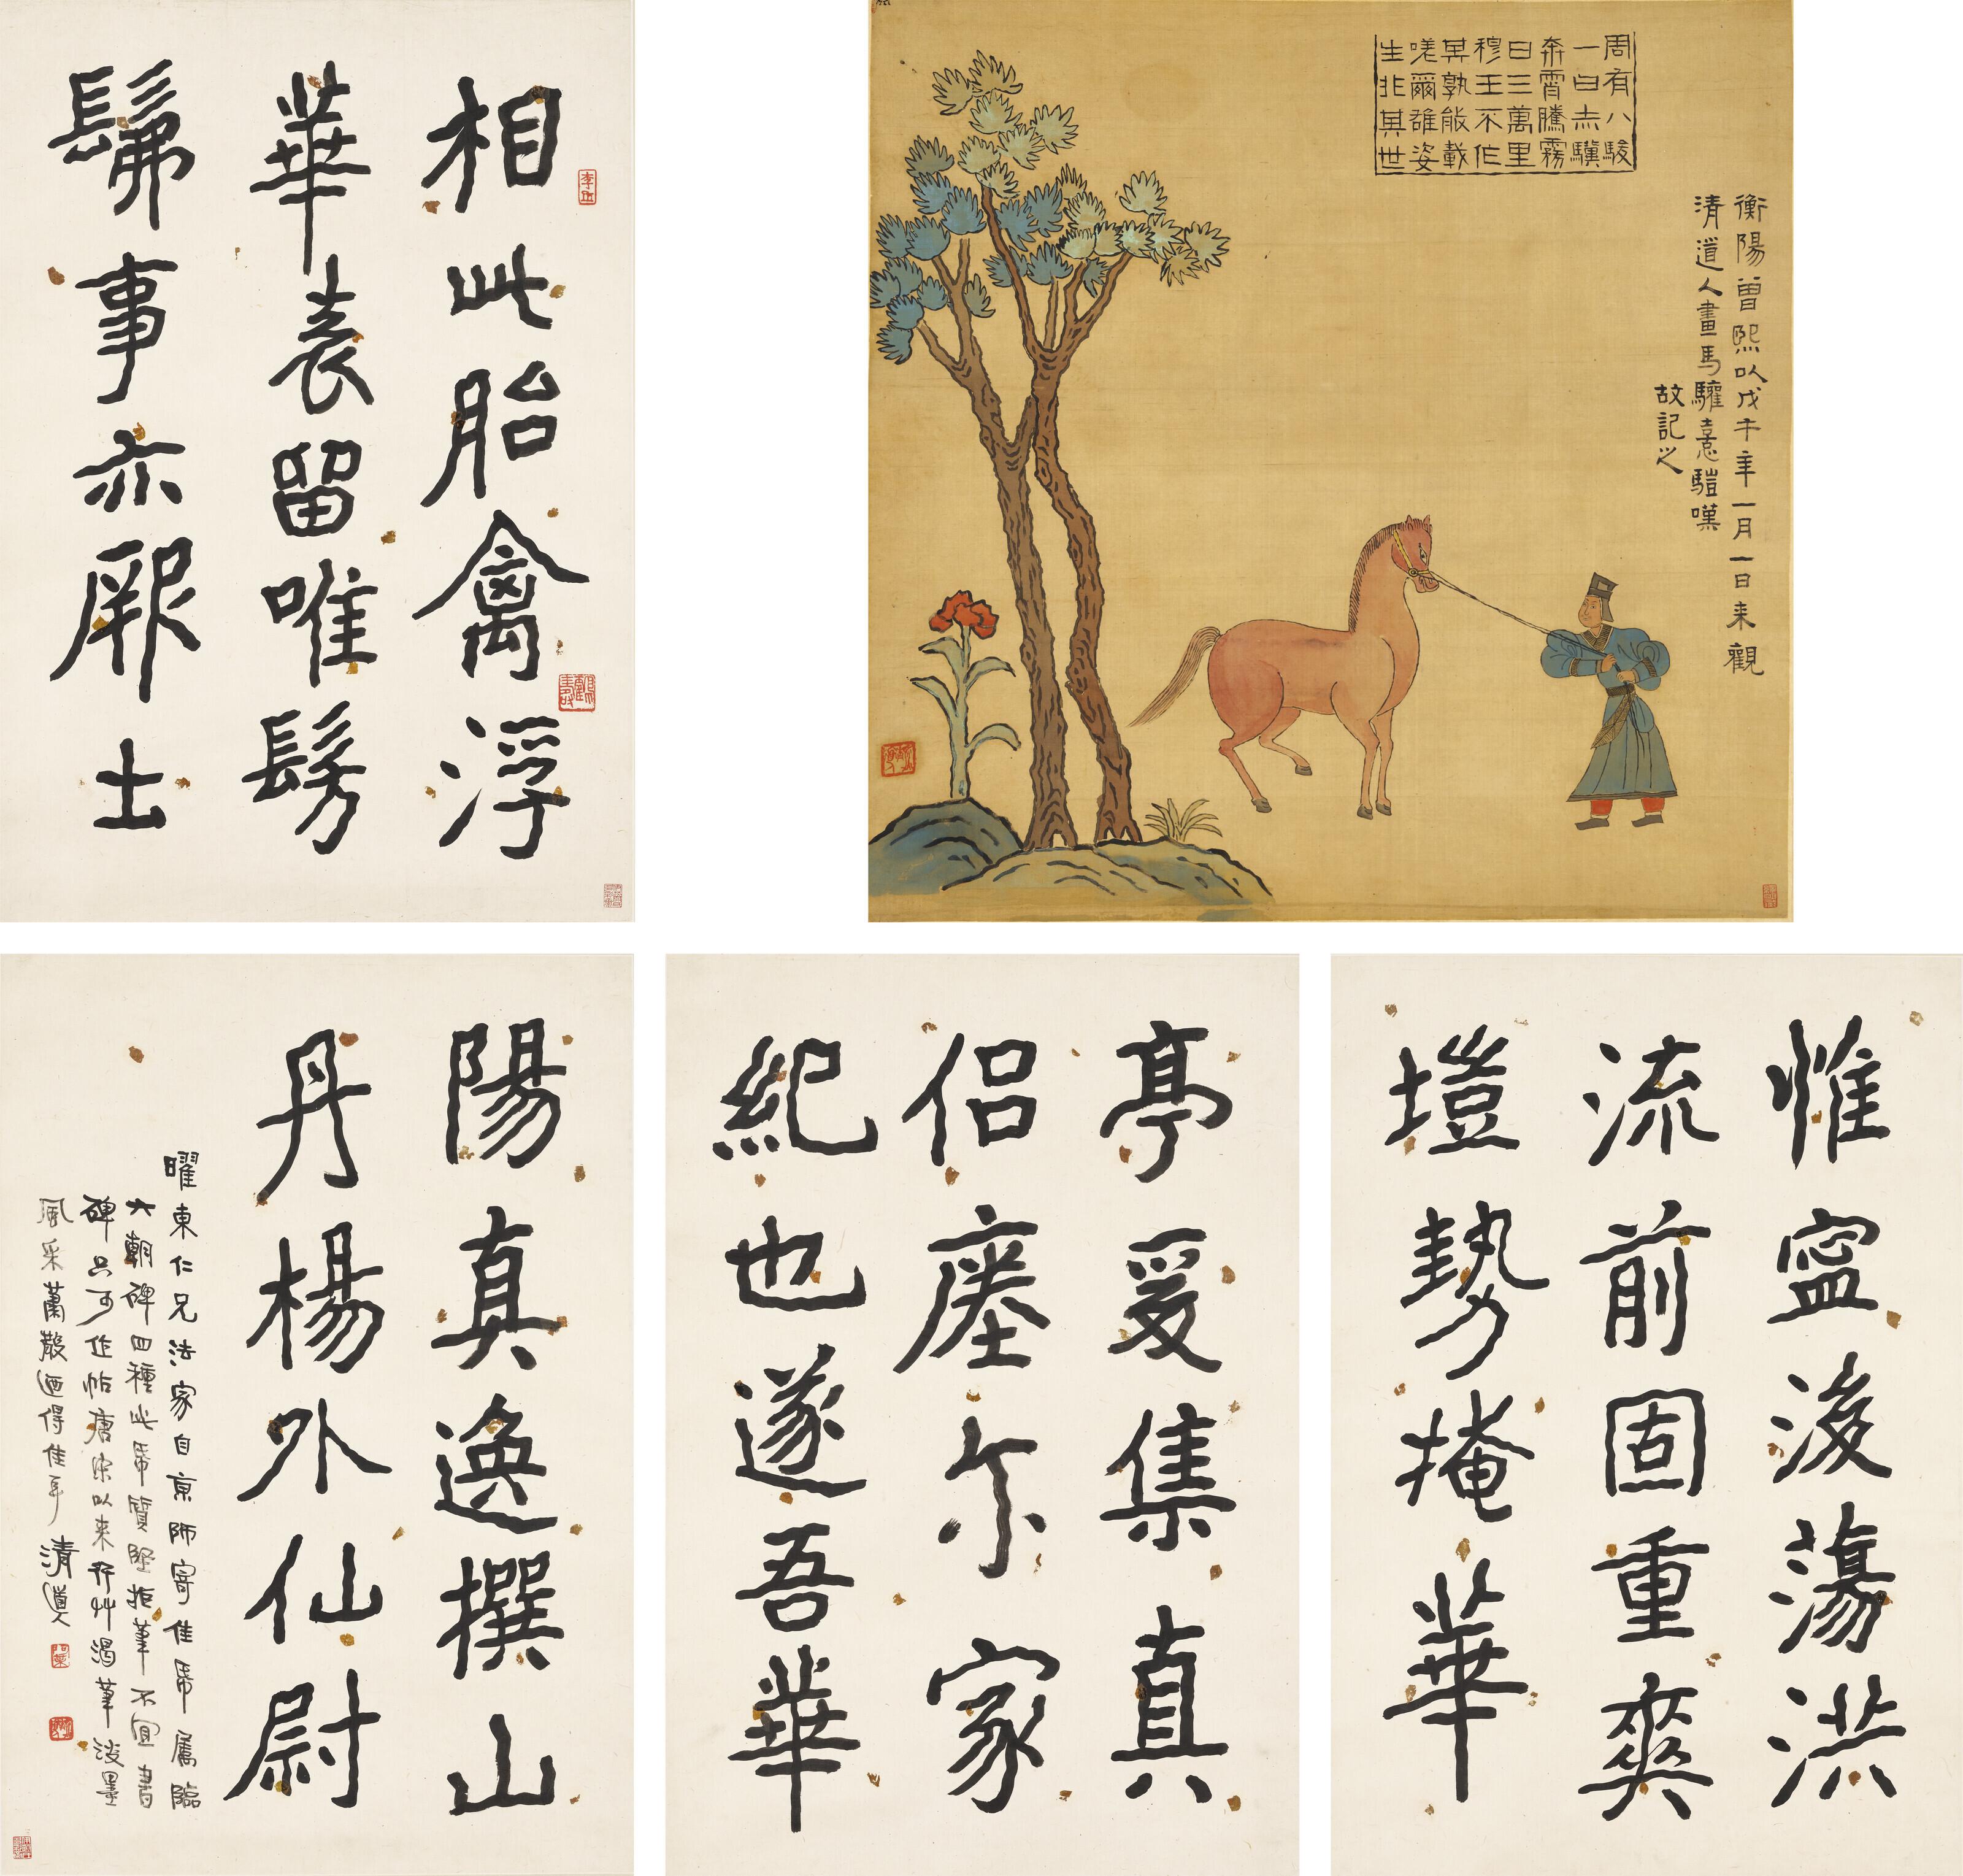 相此胎禽浮
華表留唯髣
髴事亦厥土
周有八駿
一曰赤驥
奔霄騰霧
日三萬里
穆王不作
其孰能載
嗟爾雄姿
生非其世
衡陽曾熙以戊午年一月一日来觀
清道人畫馬驩憙嘆
故記之
惟寧後蕩洪
流前固重爽
塏勢掩華
亭爰集真
侶瘞尒家
紀也遂吾華
陽真逸撰山
丹楊外仙尉
曜東仁兄法家自京師寄佳帋屬臨
六朝碑四種此帋質堅拒筆不宜書
碑只可作帖唐宋以來行艸渴筆淡墨
風采蕭散迺得佳耳 清道人